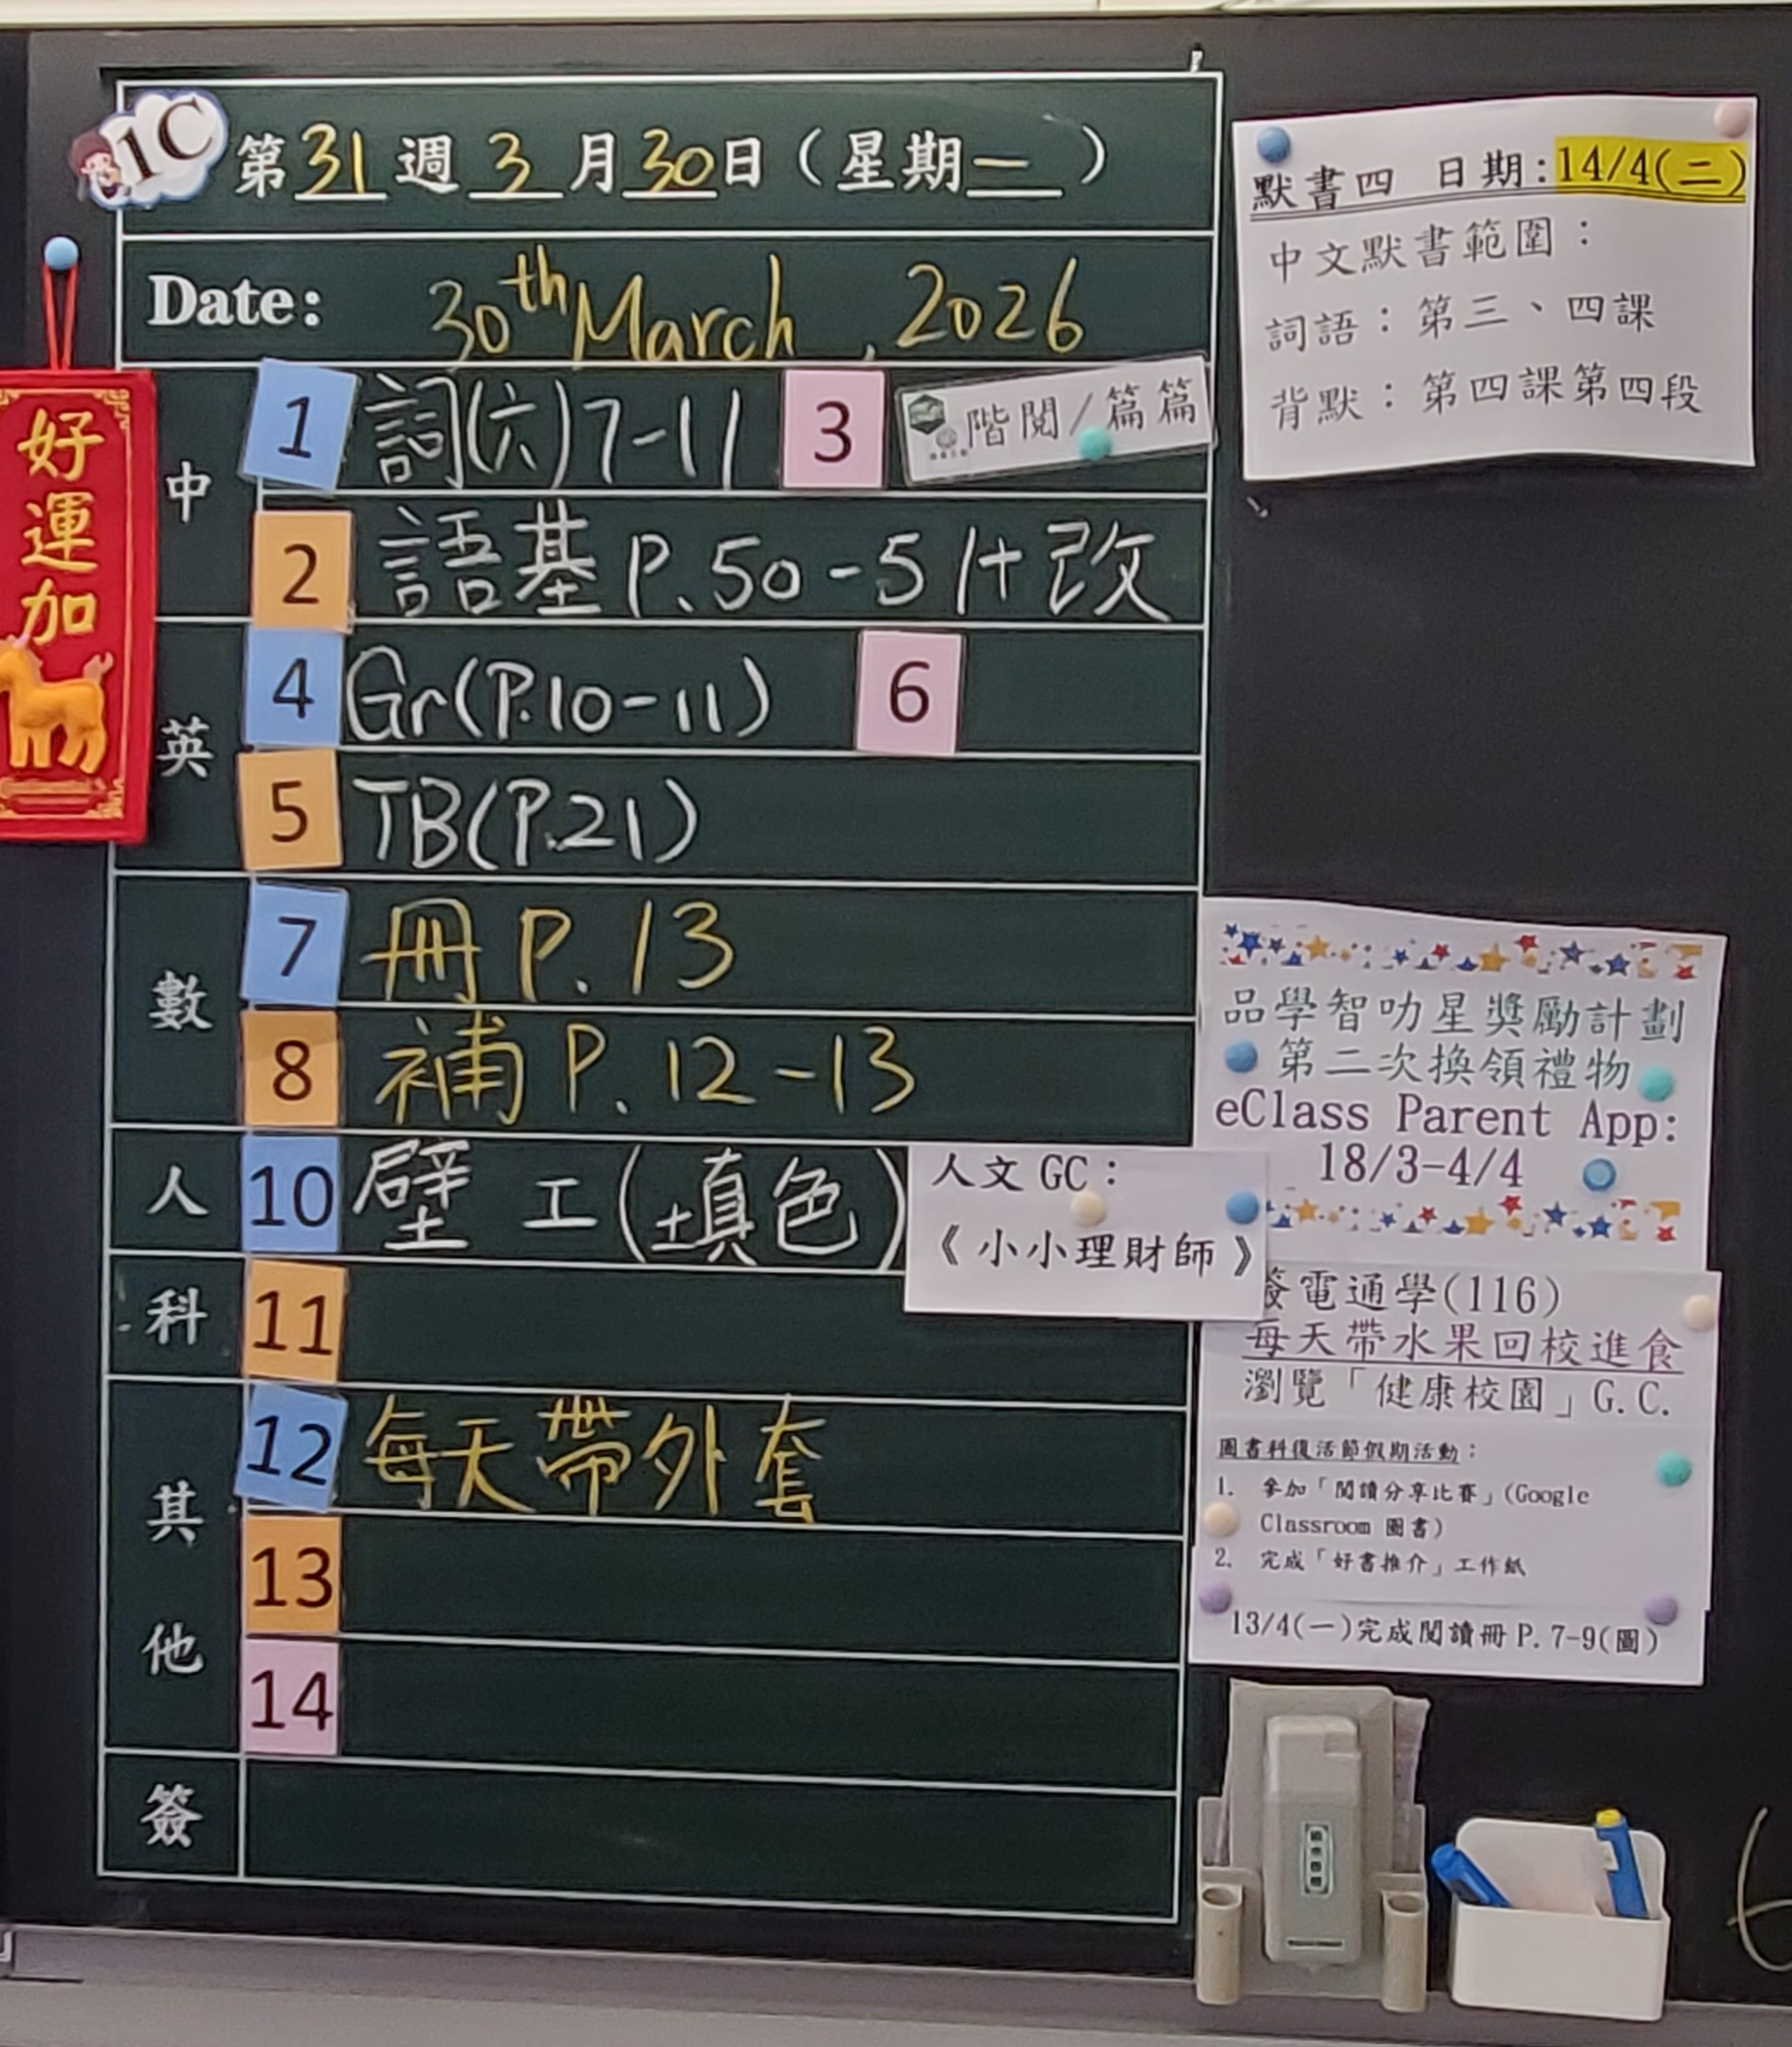 1C
第31週3月30日（星期一）
Date: 30th March, 2026
好運加
中
1 詞(六)7-11 3 階閱/篇篇
2 語基P.50-51+改
英
4 Gr(P.10-11) 6
5 TB(P.21)
數
7 冊P.13
8 補P.12-13
人
10 壁工(填色)
人文GC：
《小小理財師》
科
11
其他
12 每天帶外套
13
14
簽
默書四 日期:14/4(二)
中文默書範圍：
詞語：第三、四課
背默：第四課第四段
品學智叻星獎勵計劃
第二次換領禮物
eClass Parent App:
18/3-4/4
簽電通學(116)
每天帶水果回校進食
瀏覽「健康校園」G.C.
圖書科復活節假期活動：
1. 參加「閱讀分享比賽」(Google
Classroom 圖書)
2. 完成「好書推介」工作紙
13/4(一)完成閱讀冊P.7-9(圖)